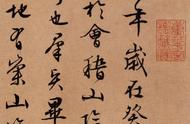 年歲在癸
於會稽山陰
也羣賢畢
地有崇山